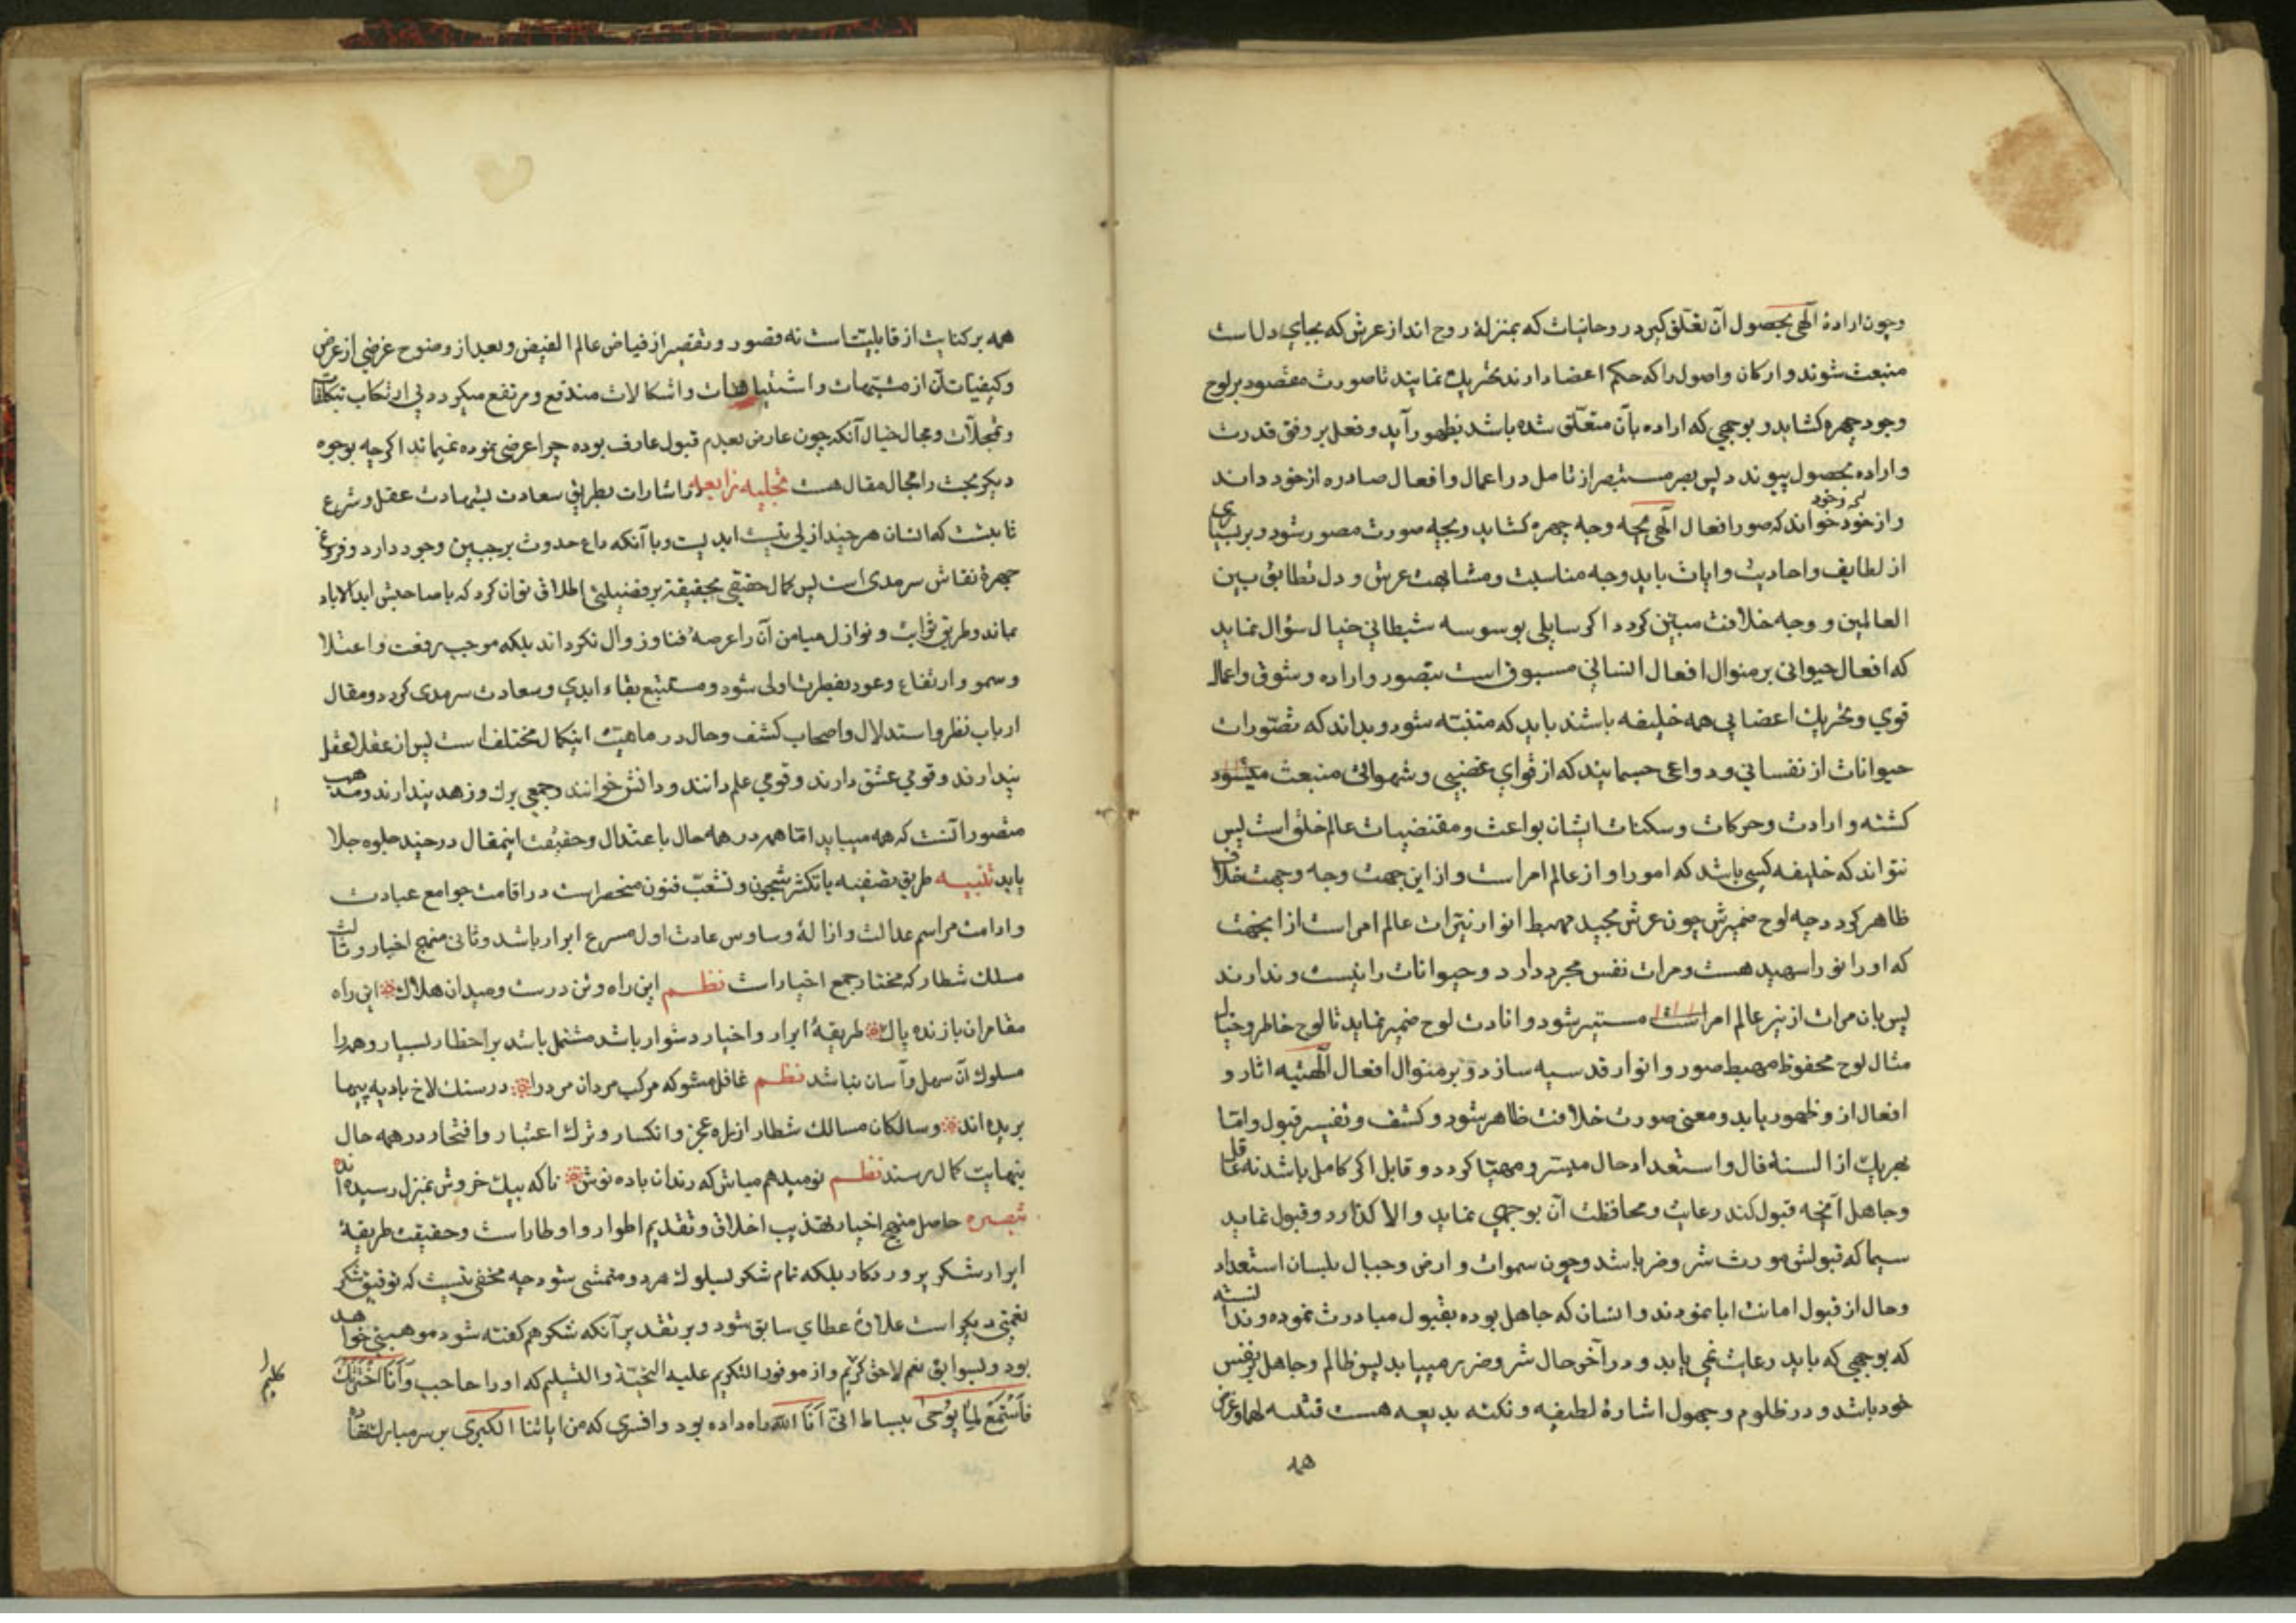 وچون ارادهٔ الٓهی بحصول آن تعلّق کیرد روحانیات که بمنزلهٔ روح اند از عرش که بجای دل است
منبعث شوند و ارکان و اصول را که حکم اعضا دارند تحریک نمایند تا صورت مقصود بر لوح
وجود چهره کشاید و بوجهی که اراده بآن متعلّق شده باشد بظهور آید و فعل بر وفق قدرت
و اراده بحصول پیوندد پس بصر مستبصر از تامل در اعمال و افعال صادره از خود داند
و از خود خواند که صور افعال الٓهی بچه وجه چهره کشاید و بچه صورت مصور شود و بر بسیاری
از لطایف و احادیث و ایات باید وجه مناسبت و مشابهت عرش و دل تطابق بین
العالمین و وجه خلافت مبیّن کردد اکر سایلی بوسوسه شیطانی خیال سؤال نماید
که افعال حیوانی بر منوال افعال انسانی مسبوق است بتصور و اراده و شوق و اعمال
قوی و تحریک اعضا پی همه خلیفه باشند باید که متنبّه شود و بداند که تصّورات
حیوانات از نفسانی و دواعی جسمانیند که از قوای غضبی و شهوانی منبعث میشود
کشته و ارادت و حرکات و سکنات ایشان بواعث و مقتضیات عالم خلق است پس
نتواند که خلیفه کسی باشد که امور او از عالم امر است و از این جهت وجه و جهت خلاف
ظاهر کردد چه لوح ضمیرش چون عرش مجید مهبط انوار نیّرات عالم امر است از اینجهت
که او را نور اسپهبد هست و مرات نفس مجرد دارد و حیوانات را نیست و ندارند
پس بان مرات از نیر عالم امر است مستنیر شود و انارت لوح ضمیر نماید تا لوح خاطر و خیال
مثال لوح محفوظ مهبط صور و انوار قدسیه سازد و بر منوال افعال الٓهیّه اثار و
افعال از و ظهور یابد و معنی صورت خلافت ظاهر شود و کشف و تفیسر قبول و امّا
بهریک از السنهٔ قال و استعداد حال میسّر و مهیّا کردد و قابل اکر کامل باشد نه غافل
و جاهل آنچه قبول کند رعایت و محافظت آن بوجهی نماید و الا کذارد و قبول نماید
سیما که قبولش مورث شر و ضر باشد و چون سموات و ارض و جبال بلسان استعداد
و حال از قبول امانت ابا نمودند و انسان که جاهل بوده بقبول مبادرت نموده و ندانسته
که بوجهی که باید رعایت نمی یابد و در آخر حال شر و ضرر مییابد پس ظالم و جاهل بر نفس
خود باشد و در ظلوم و جهول اشارهٔ لطیفه و نکته بدیعه هست فتنبه لهما و غرض
همه
همه بر کنایت از قابلیّتست نه قصور و تقصیر از فیاض عالم الفیض و بعد از وضوح غرضی از عرض
و کیفیات آن از مشتبهات و اشتباهات و اشکالات مندفع و مرتفع میکردد بی ارتکاب تکلفات
و تمحلات و مجال خیال آنکه چون عارض بعدم قبول عارف بوده چرا عرض نموده نمیماند اکرچه بوجوه
دیکر بحث را مجال مقال هست تجلیه رابعه در اشارات بطریق سعادت بشهادت عقل و شرع
ثابتست که انسان هر چند ازلی نیست ابدیست و با آنکه داغ حدوث بر جبین وجود دارد و فروغ
چهرهٔ نقاش سرمدی است پس کمال حقیقی بحقیقة بر فضیلتی اطلاق توان کرد که با صاحبش ابد الاباد
بماند و طریق نوایب و نوازل میامن آن را عرصهٔ فنا و زوال نکرداند بلکه موجب رفعت و اعتلا
و سمو و ارتفاع و عود بفطرت اولی شود و مستتبع بقاء ابدی و سعادت سرمدی کردد و مقال
ارباب نظر و استدلال و اصحاب کشف و حال در ماهیّت اینکمال مختلف است پس از عقل لعقل
پندارند و قومی عشق دارند و قومی علم دانند و دانش خوانند و جمعی برک و زهد پندارند و مذهب
منصور آنست که همه میباید اما همه در همه حال با عتدال و حقیقت اینمقال در چند جلوه جلا
یابد تنبیه طریق تصفیه با تکثر شجون و تشعّب فنون منحصر است در اقامت جوامع عبادت
و ادامت مراسم عدالت و ازالهٔ وساوس عادت اول مسرع ابرار باشد و ثانی منهج اخیار و ثالث
مسلک شطار که مختار جمع اخیار است نظم این راه و ئن درست و میدان هلاک این راه
مقامران بازنده پاک طریقهٔ ابرار و اخیار دشوار باشد مشتمل باشد بر اخطار بسیار و هر را
مسلوک آن سهل و آسان نباشد نظم غافل مشو که مرکب مردان مرد را در سنک لاخ بادیه پیها
بریده اند و سالکان مسالک شطار از یل عجز و انکسار و ترک اعتبار و افتخار در همه حال
بنهایت کمال رسند نظم نومید هم مباش که رندان باده نوش ناکه بیک خروش بمنزل رسیده اند
تبصره حاصل منهج اخیار تهذیب اخلاق و تقدیم اطوار و اوطار است و حقیقت طریقهٔ
ابرار شکر پروردکار بلکه تمام شکر بسلوک هر دو متمشی شود چه مخفی نیست که توفیق شکر
نعمتی دیکر است علاوهٔ عطای سابق شود و بر تقدیر آنکه شکر هم کفته شود موهبتی خواهد
بود و بسوابق نعم لاحق کریم و از موفور التکریم علیه التحیّة و التسلیم که او را حاجب وَاَنَا اخْتَرْتُکَ
فَاسْتَمِعْ لِمٰا یُوحی ببساط انّی اَنَا اللّٰه راه داده بود و افسری که من ایاتنا الکبری بر سر مبارکش نهاده
کلیم را